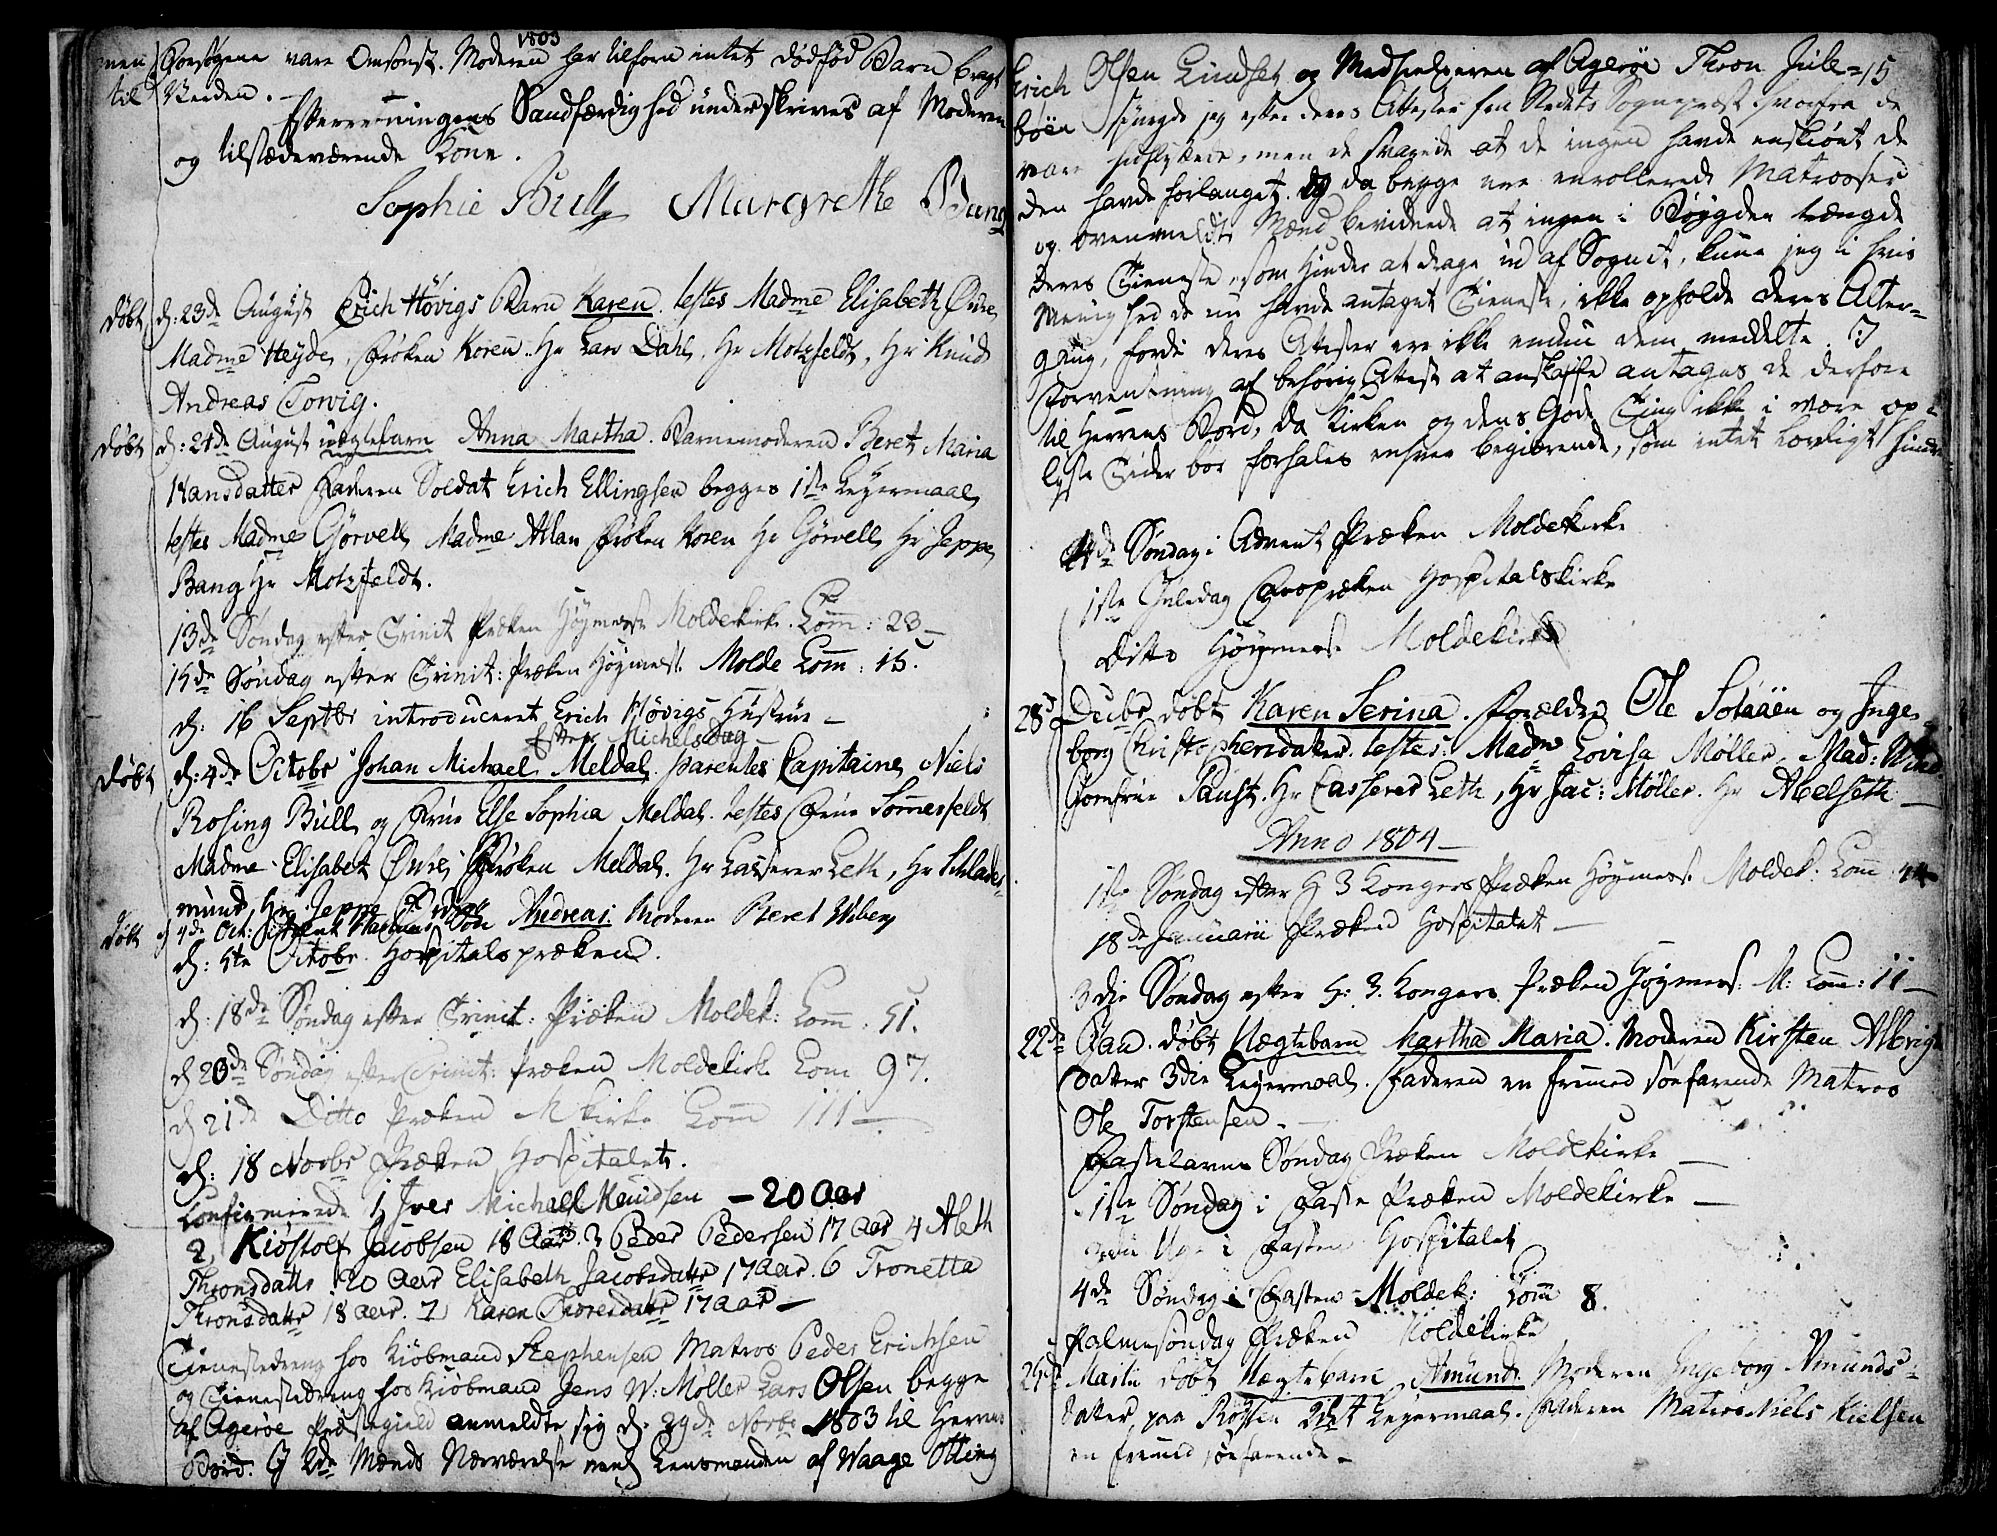 1803
nen Forsøgene vare Omsonst. Moderen har tilforn intet dødfød Barn bragt
til Verden.
Efterretningens Sandfærdighed underskrives af Moderen
og tilstædeværende Kone.
Sophie Bull Margrethe Bang
døbt d: 23de August Erich Høvigs Barn Karen. testes Madme Elisabeth Øwre
Madme Heyde, Frøken Koren. Hr Lars Dahl, Hr Motzfeldt, Hr Knud
Andreas Torvig.
døbt d: 24de August uægtebarn Anna Martha. Barnemoderen Beret Maria
Hansdatter Faderen Soldat Erich Ellingsen begges 1ste Leyermaal,
testes Madme Gørvell Madme Allan Frøken Koren Hr Gørvell Hr Jeppe
Bang Hr Motzfeldt.
13de Søndag efter Trinit Præken Høymesse Moldekirke. Comm: 23
15de Søndag efter Trinit: Præken Høymess. Molde Comm: 15.
d: 16 Septbr introduceret Erich Høvigs Hustrue
Efter Michelsdag
døbt d: 4de Octobr Johan Michael Meldal. parentes Capitaine Niels
Rosing Bull og Frue Else Sophia Meldal. testes Frue Sommerfeldt
Madme Elisabet Øwre, Frøken Meldal. Hr Casserer Leth, Hr Schlader
mund, Hr Jeppe
døbt d 4de Oct: Andreas. Moderen Beret Wiberg
d: 5te Octobr. Hospitalspræken.
d: 18de Søndag efter Trinit: Præken Moldek: Comm: 51.
d 20de Søndag efter Trinit: Præken Moldekirk Com 97.
d 21de Ditto Præken M kirke Com 111
d: 18 Novbr Præken Hospitalet.
Confirmerede 1 Iver Michael Knudsen – 20 Aar
2 Kiøstolf Jacobsen 18 Aar. 3 Peder Pedersen 17 Aar 4 Abeth
Thronsdattr 20 Aar Elisabeth Jacobsdattr 17 Aar. 6 Tronetta
Thronsdattr 18 Aar. 7 Karen Thoresdattr 17 Aar
Tienestedreng hos Kiøbmand Stephensen Matros Peder Erichsen
og Tienestedreng hos Kiøbmand Jens W: Møller Lars Olsen begge
af Agerøe Præstegield anmeldte sig d: 29de Novbr 1803 til Herrens
Bord. I 2de Mænds Nærværelse Lensmanden af Waage Otting
Erich Olsen Lindset og Medhielperen af Agerøe Thron Jule= 15
bøen spurgde jeg efter deres Attester fra Stedets Sognepræst hvorfra de
vare hidflyttede, men de svarede at de ingen havde enskiønt de
den havde forlanget. Og da begge ere enrollerede Matroser
og ovenmeldte Mænd bevidnede at ingen i Bøygden trængde
deres Tieneste, som hinder at drage ud af Sognet, kunde jeg i hvis
Menighed de nu havde antaget Tieneste, ikke opholde deres Alter-
gang, fordi deres Attester ere ikke endnu dem meddelte. I
Forventning af behørig Attest at anskaffe antages de derfore
til Herrens Bord, da Kirken og dens Gode Ting ikke i vore op-
lyste Tider bør forhales enhver begiærende, som intet lovligt hindrer
4de Søndag i Advent Præken Moldekirke
1ste Juledag Froprædken Hospitalskirke
Ditto Høymess. Moldekirke
28de Decbr døbt Karen Serina. Forældre Ole Solaaen og Inge-
borg Christophersdatter. testes: Madme Lovisa Møller, Mad: Wind
Jomfrue Faust. Hr Casserer Leth, Hr Jac: Møller. Hr Abelseth
Anno 1804
1ste Søndag efter H 3 Kongers Præken Høymess. Moldek. Com 44
18de Januarii Præken Hospitalet
3die Søndag efter H: 3. Kongers Præken Høymess: M: Com: 11
22de Jan. døbt Uægtebarn Martha Maria. Moderen Kirsten Albrigt
datter 3die Leyermaal. Faderen en fremed søefarende Matros
Ole Torstensen.
Fastelavns Søndag Præken Moldekirke
1ste Søndag i Faste Præken Moldekirke
Uge i Fasten Hospitalet
4de Søndag i Fasten Moldek: Comm 8.
Palmesøndag Præken Moldekirke
Martii døbt Uægtebarn Amund. Moderen Ingeborg Amunds-
datter paa Røssen Leyermaal. Faderen Matros Niels Nielsen
en fremed søefarende.